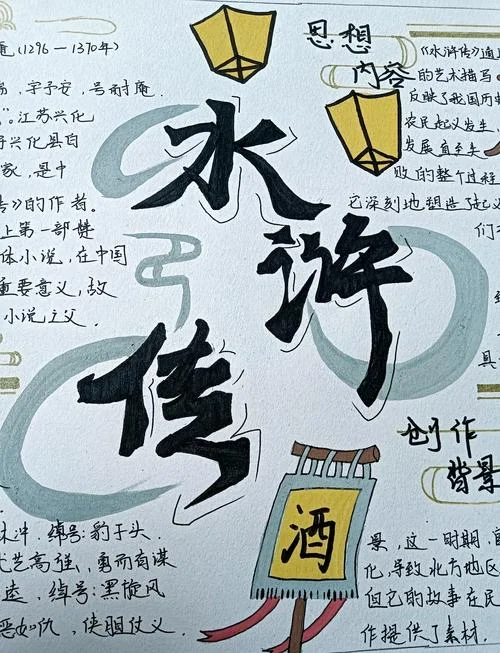 水浒传
庵(1296—1370年)
字子安，号耐庵.
”。江苏兴化
兴化县白
家，是中
传》的作者。
上第一部
体小说，在中国
重要意义，故
小说之父.
思想
内容
《水浒传》通
的艺术描写
反映了我国历
农民起义发生
发展直至失
败的整个过程
它深刻地塑造了起义
们
具
林冲.绰号:豹子头.
武艺高强，勇而有谋
逵，绰号:黑旋风
恶如仇，侠胆仗义.
酒
创作
背景
景，这一时期，
化,导致北方地区
但它的故事在民
作提供了素材.